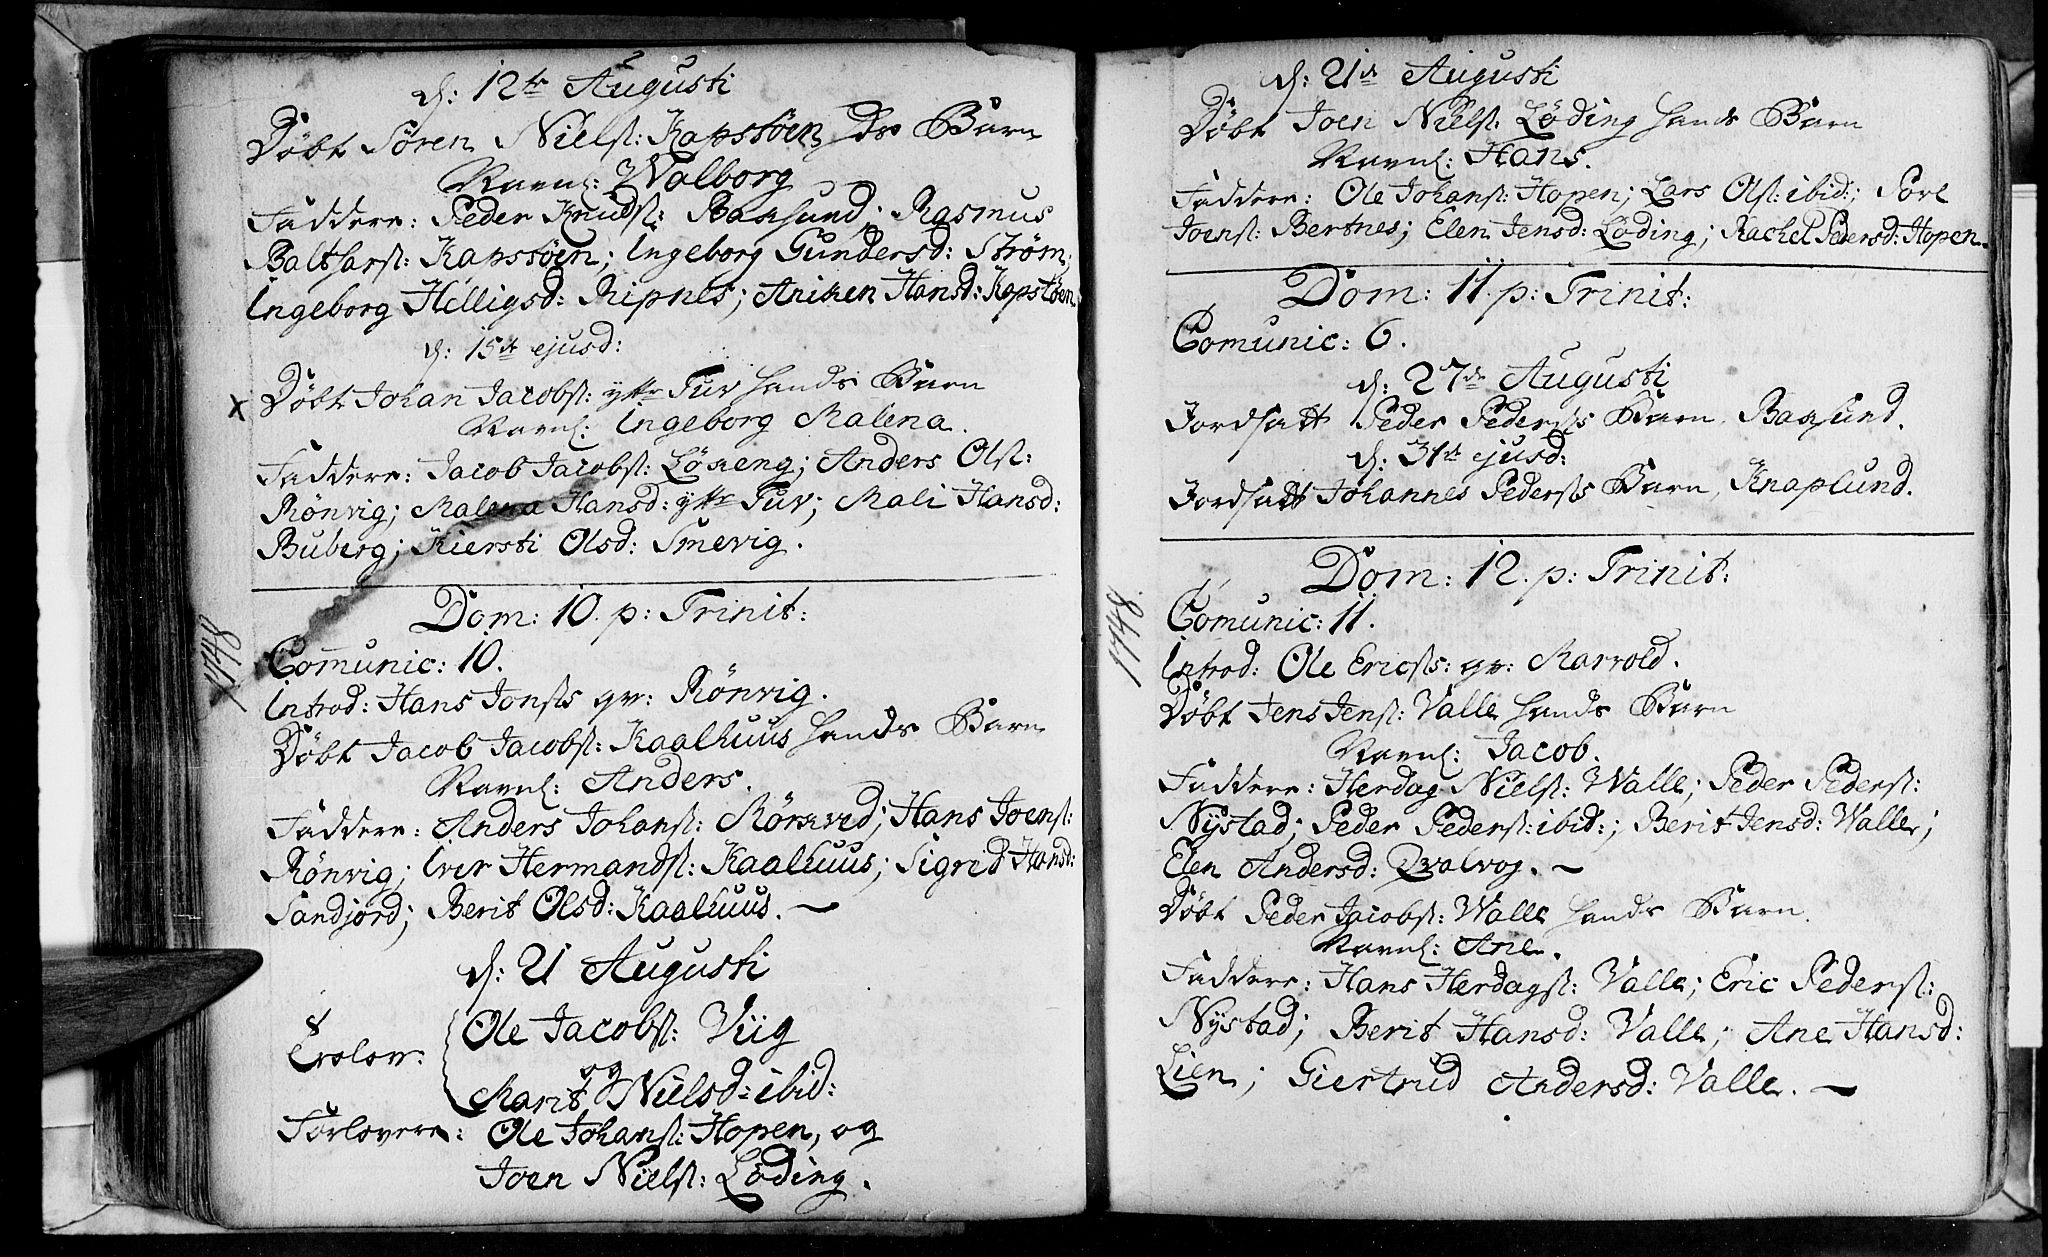 d: 12te Augusti
Döbt Sören Nielsſ: Kapstöen ds Barn
Navnl: Walborg
Faddere: Peder Knudsſ: Baxsund; Rasmus
Baltsarsſ: Kapstöen; Ingeborg Gundersd: Ström;
Ingeborg Helligsd: Ripnes; Aniken Hansd: Kapstöen
d: 15de ejusd:
x Döbt Johan Jacobsſ: yttr Tuv hands Barn
Navnl: Ingeborg Malena.
Faddere: Jacob Jacobsſ: Lökeng; Anders Olsſ:
Rönvig; Malena Hansd: yttr Tuv; Mali Hansd:
Buberg; Kiersti Olsd: Smevig.
1748
Dom: 10. p: Trinit:
Comunic: 10.
Introd: Hans Jonsſs qv: Rönvig.
Döbt Jacob Jacobsſ: Kaalhuus hands Barn
Navnl: Anders.
Faddere: Anders Johansſ: Rörkved; Hans Joensſ:
Rönvig; Iver Hermandsſ: Kaalhuus; Sigrid Hansd:
Sandjord; Berit Olsd: Kaalhuus. —
d: 21 Augusti
8
Ole Jacobsſ: Viig
Trolov:
og
Marit Nielsd: ibid:
Forlovere: Ole Johansſ: Hopen, og
Joen Nielsſ: Löding.
d: 21de Augusti
Döbt Joen Nielsſ: Löding hands Barn
Navnl: Hans.
Faddere: Ole Johansſ: Hopen; Lars Olsſ: ibid:; Povl
Joensſ: Bertnes; Elen Jensd: Löding; Rachel Pedersd: Hopen.
Dom: 11. p: Trinit:
Comunic: 6.
d: 27de Augusti
Jordsatt Peder Pedersſs Barn, Baxsund.
d: 31te ejusd:
Jordsatt Johannes Pedersſs Barn, Knaplund.
1748
Dom: 12. p: Trinit:
Comunic: 11.
Introd: Ole Ericsſs: qv: Marvold.
Döbt Jens Jensſ: Valle hands Barn
Navnl: Jacob.
Faddere: Herdag Nielsſ: Walle; Peder Pedersſ:
Nÿstad; Peder Pedersſ: ibid:; Berit Jensd: Walle;
Elen Andersd: Qvalvog. —
Döbt Peder Jacobsſ: Walle hands Barn.
Navnl: Ane.
Faddere: Hans Herdagsſ: Valle; Eric Pedersſ:
Nÿstad; Berit Hansd: Valle; Ane Hansd:
Lien; Giertrud Andersd: Valle. —